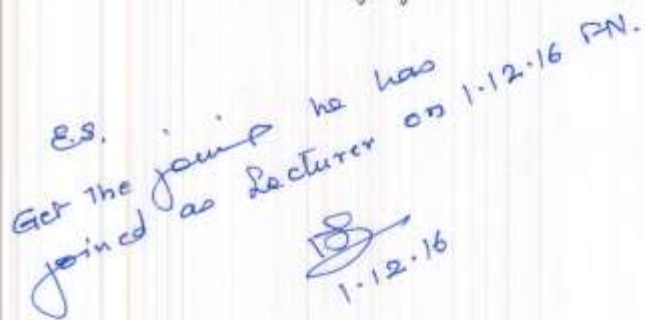 E.S.
Get the joing he has
joined as Lecturer on 1.12.16 FN.
1.12.16